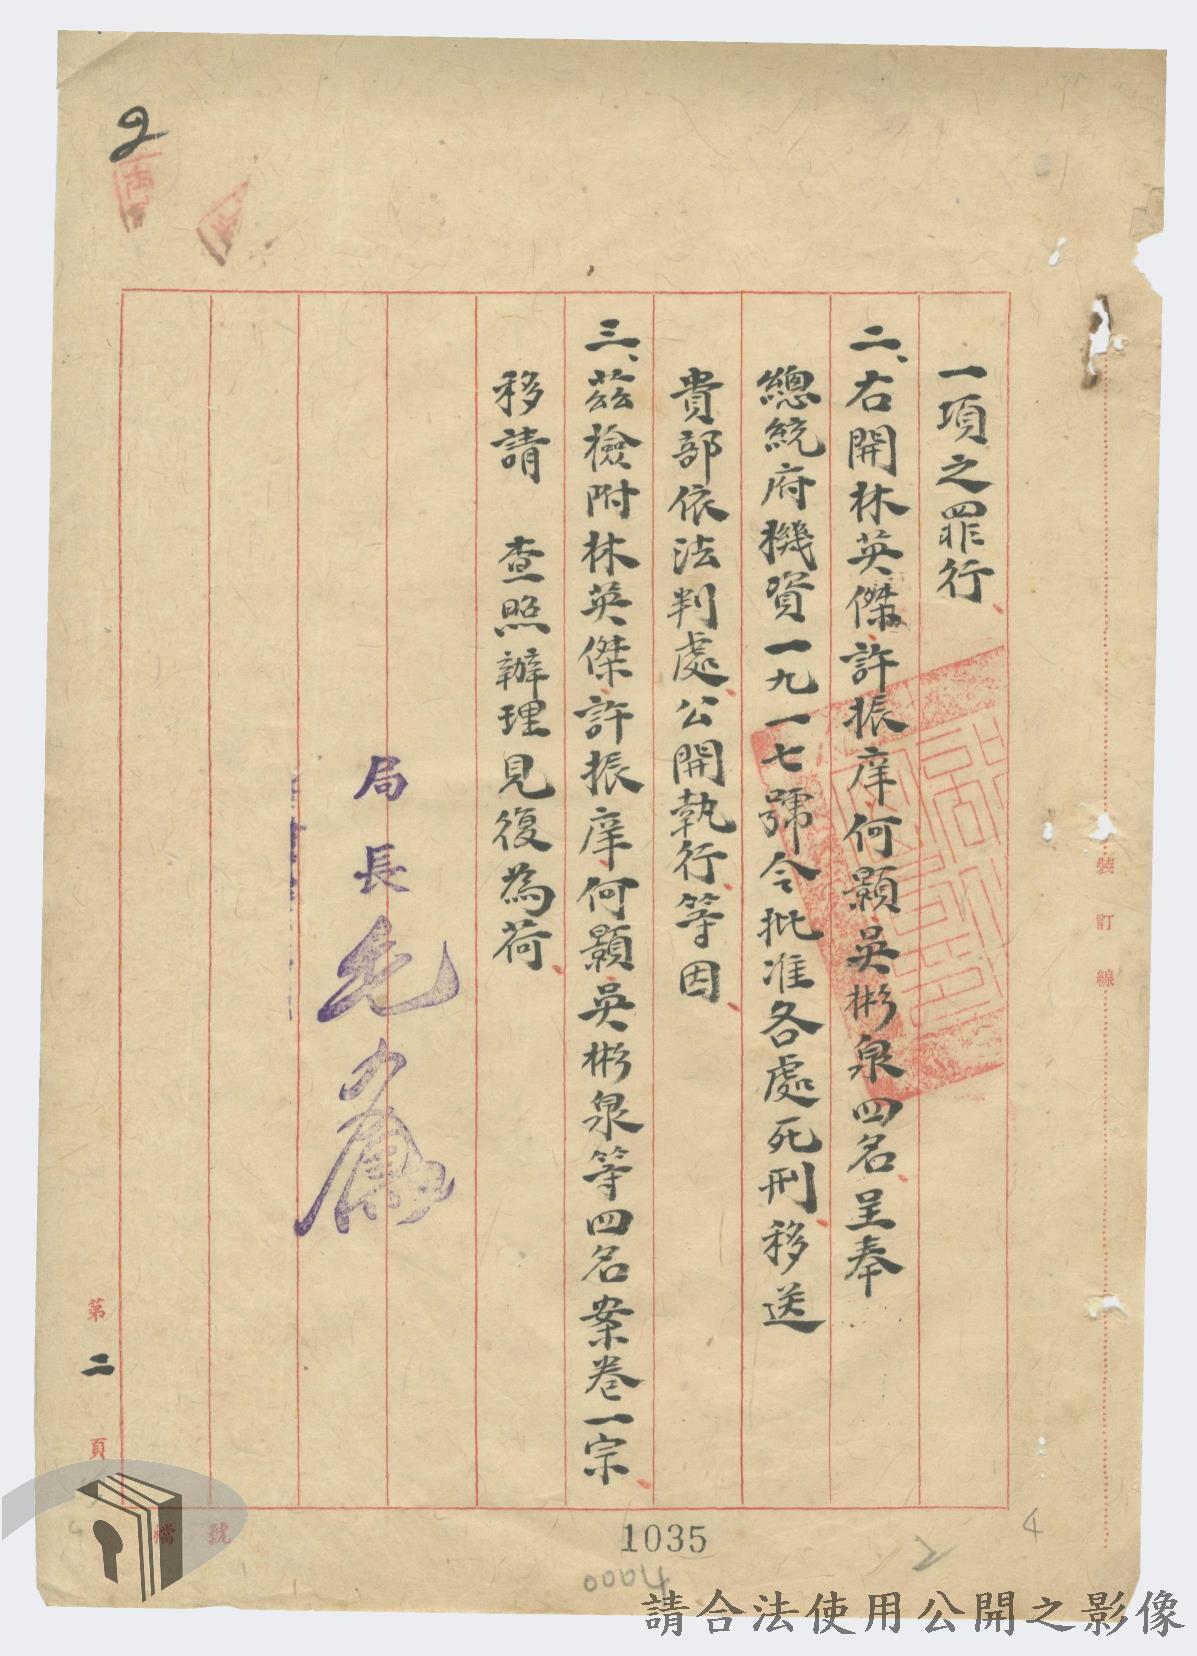 一項之罪行
二、右開林英傑許振庠何顯吳彬泉四名呈奉
總統府機資一九一七號令批准各處死刑移送
貴部依法判處公開執行等因
三、茲檢附林英傑許振庠何顯吳彬泉等四名案卷一宗
移請 查照辦理見復為荷
局長毛
裝訂線
第二頁
檔號
1035
2
4
請合法使用公開之影像